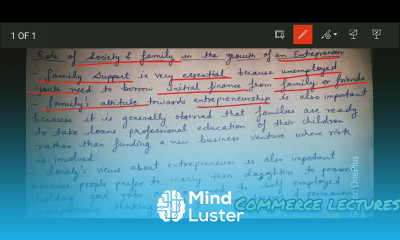 1 OF 1
Role of Society & family in the growth of an Entrepreneur
- family Support is very essential because unemployed
youth need to borrow initial finance from family or friends
- family's attitude towards entrepreneurship is also important
because it is generally observed that families are ready
to take loans professional education of their children
rather than funding a new business venture where risk
is involved
- Society's views about entrepreneurs is also important
because people prefer to marry their daughters to persons
holding govt jobs self employed
thinking permanent
Mind
Luster
COMMERCE LECTURES
OnePlus